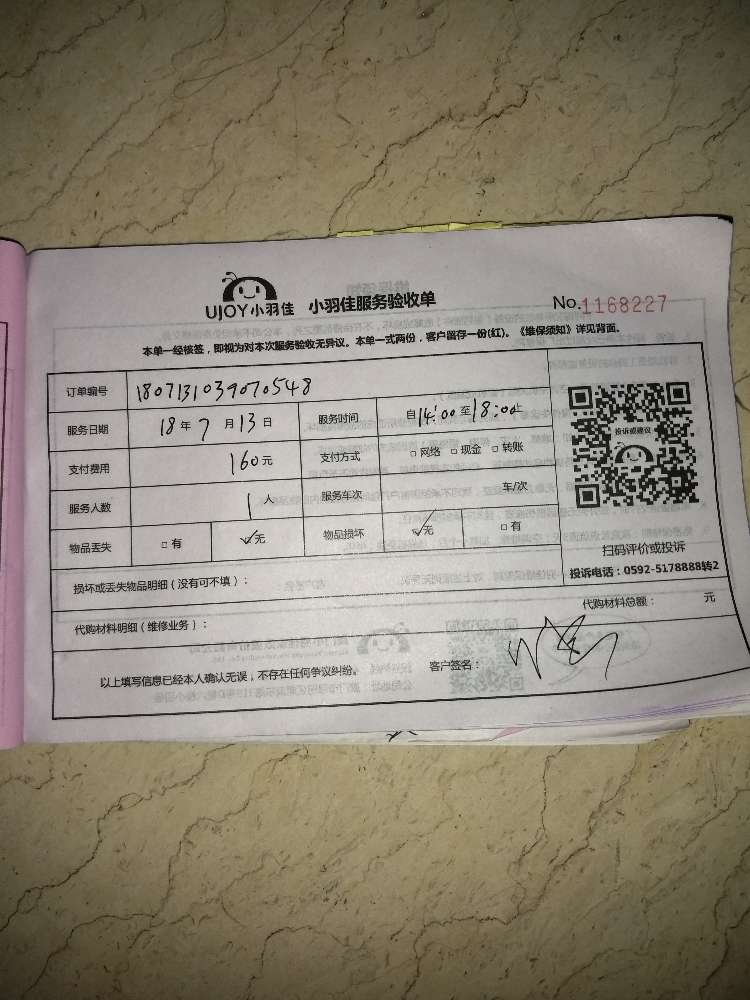 UJOY小羽佳 小羽佳服务验收单 No.1168227
本单一经核签，即视为对本次服务验收无异议。本单一式两份，客户留存一份(红)。《维保须知》详见背面。
订单编号 1807131039070548
服务日期 18年7月13日 服务时间 自14:00至18:00止
支付费用 160元 支付方式 □网络 □现金 □转账
服务人数 1人 服务车次 车/次
物品丢失 □有 ✓无 物品损坏 ✓无 □有
投诉或建议
扫码评价或投诉
投诉电话：0592-5178888转2
损坏或丢失物品明细（没有可不填）：
代购材料明细（维修业务）： 代购材料总额： 元
以上填写信息已经本人确认无误，不存在任何争议纠纷。 客户签名：